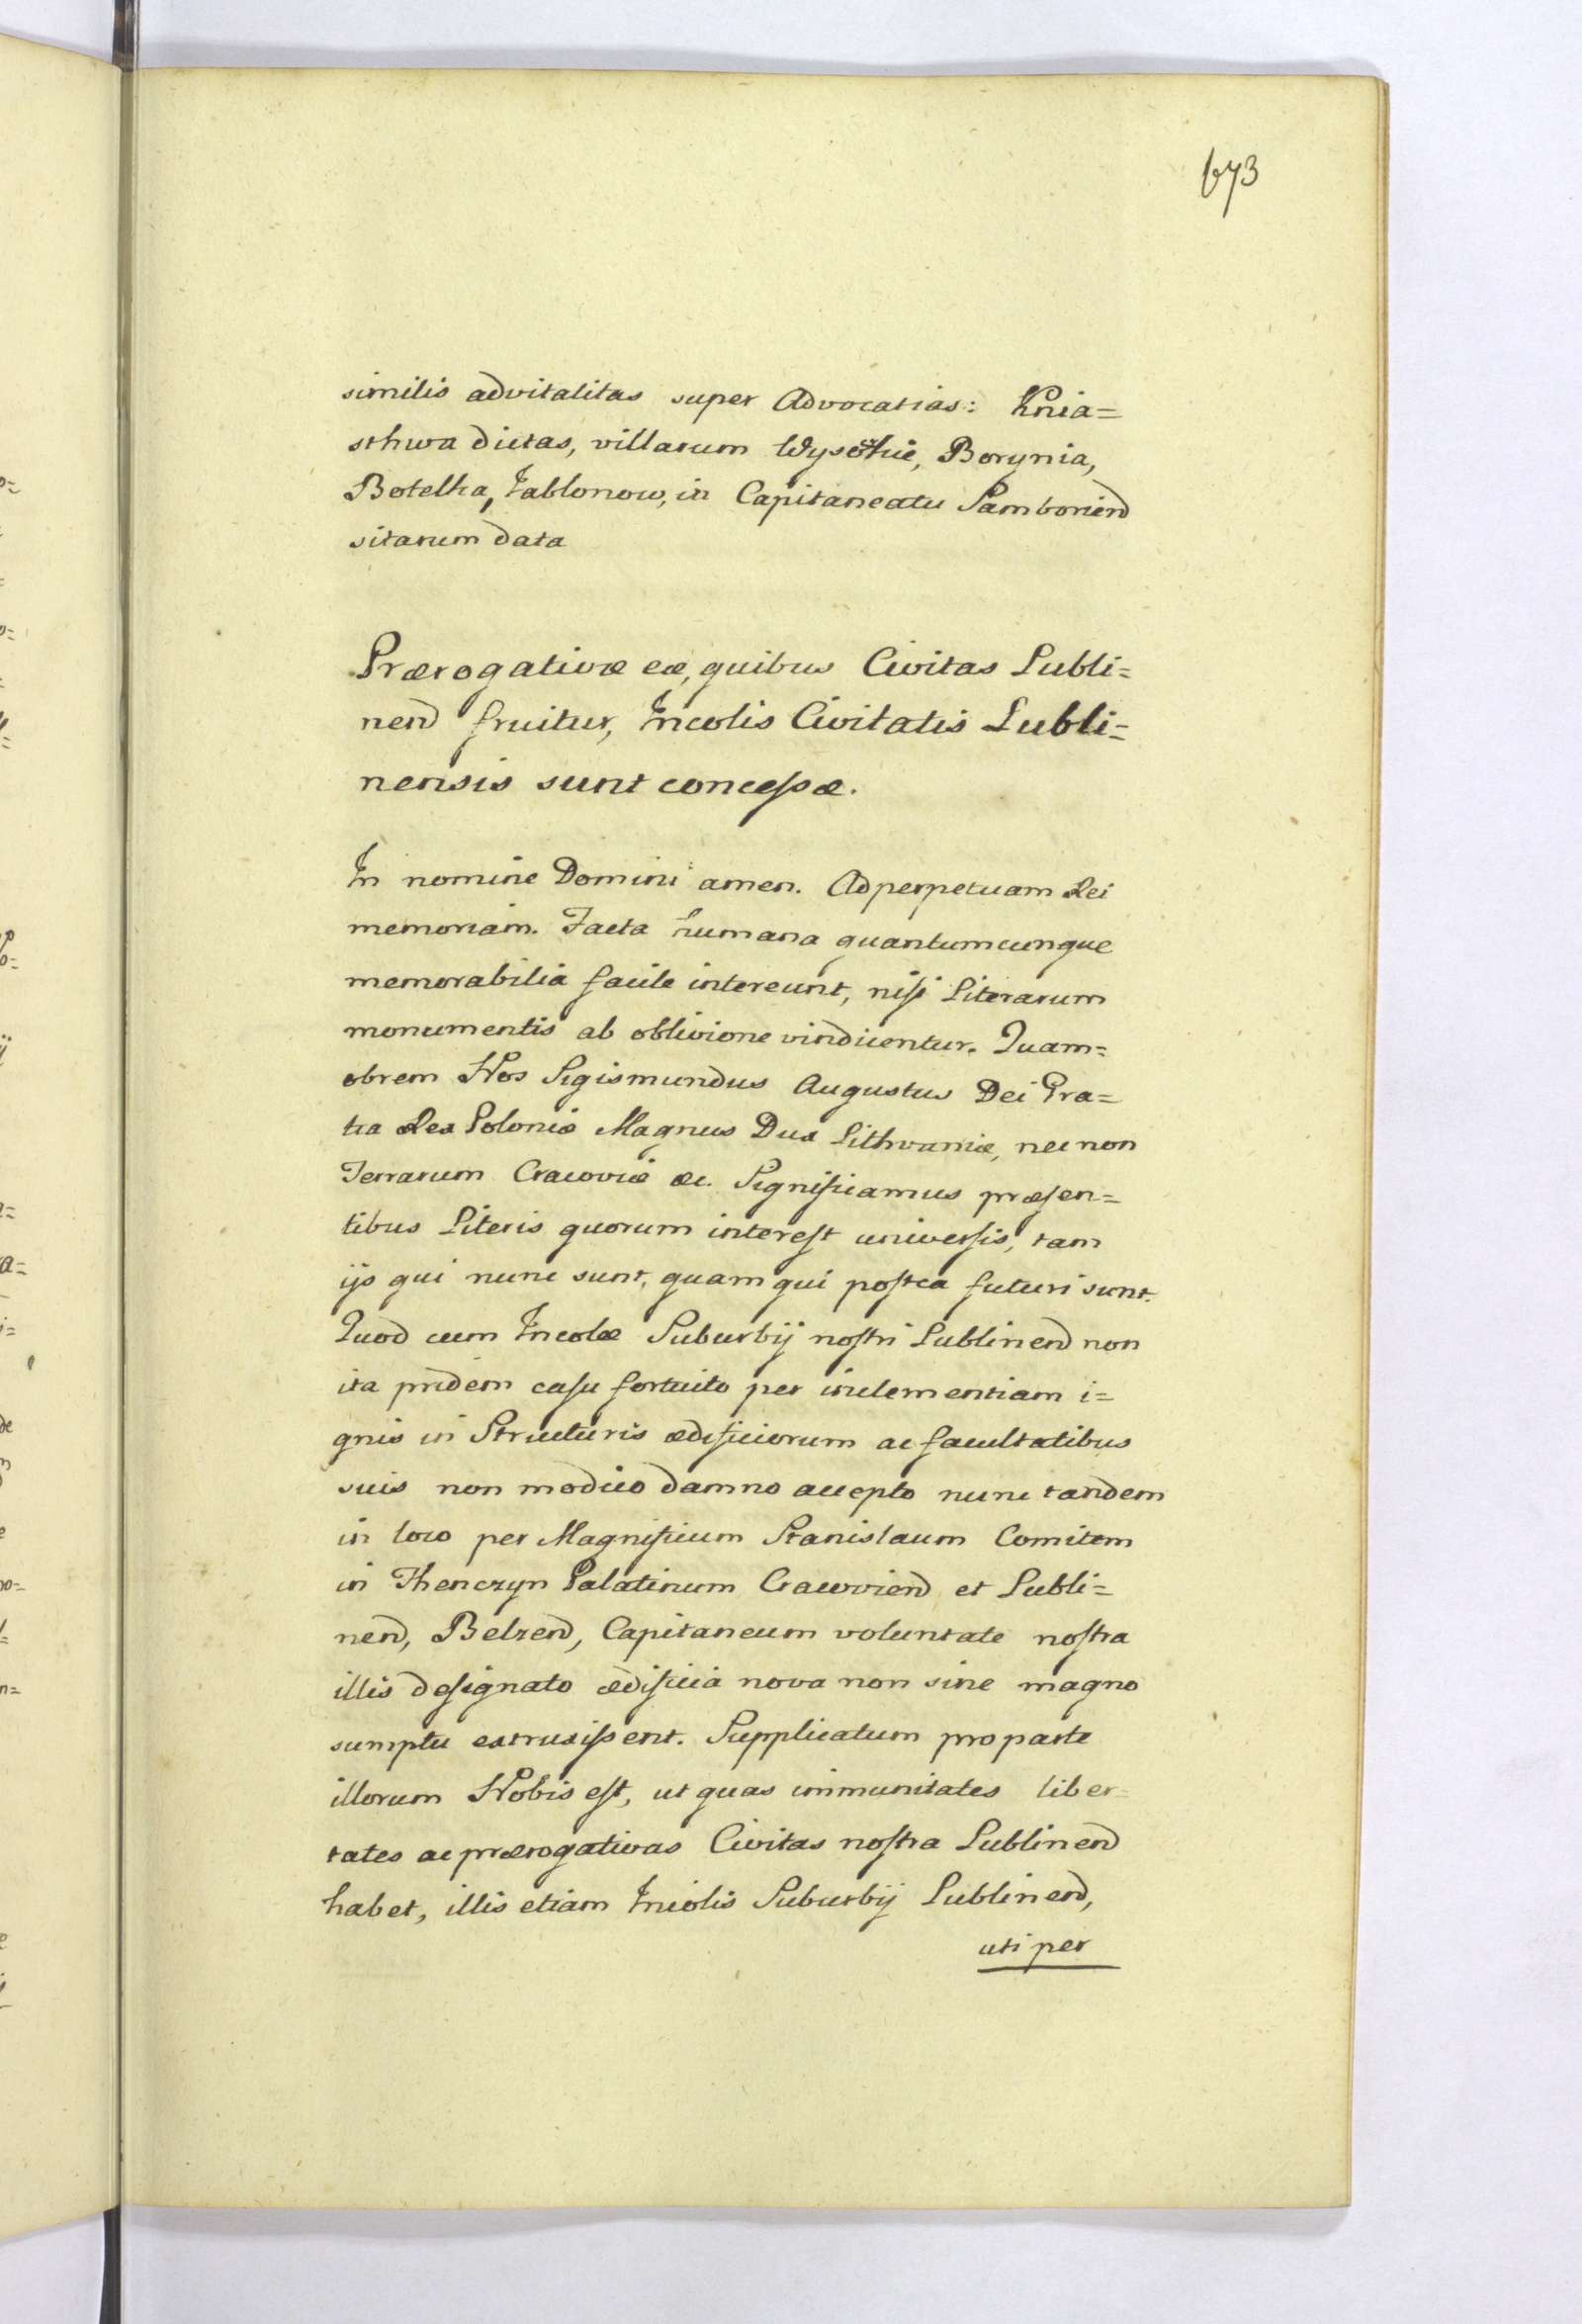 673
similis advitalitas super Advocatias: Knia=
sthwa dictas, villarum Wysotkie, Borynia,
Botelka, Jablonow, in Capitaneatu Samborien
sitarum data
Prærogativæ eæ, quibus Civitas Lubli=
nen fruitur, Incolis Civitatis Lubli=
nensis sunt concessæ.
In nomine Domini amen. Ad perpetuam Rei
memoriam. Facta humana quantumcunque
memorabilia facile intereunt, nisi Literarum
monumentis ab oblivione vindicentur. Quam=
obrem Nos Sigismundus Augustus Dei Gra=
tia Rex Poloniæ Magnus Dux Lithvaniæ, nec non
Terrarum Cracoviæ &c. Significamus præsen=
tibus Literis quorum interest universis, tam
ijs qui nunc sunt, quam qui postea futuri sunt.
Quod cum Incolæ Suburbij nostri Lublinen non
ita pridem casu fortuito per inclementiam i=
gnis in Structuris ædificiorum ac facultatibus
suis non modico damno accepto nunc tandem
in loco per Magnificum Stanislaum Comitem
in Thenczyn Palatinum Cracovien et Lubli=
nen, Belzen, Capitaneum voluntate nostra
illis designato ædificia nova non sine magno
sumptu extruxissent. Supplicatum pro parte
illorum Nobis est, ut quas immunitates liber=
tates ac prærogativas Civitas nostra Lublinen
habet, illis etiam Incolis Suburbij Lublinen,
uti per